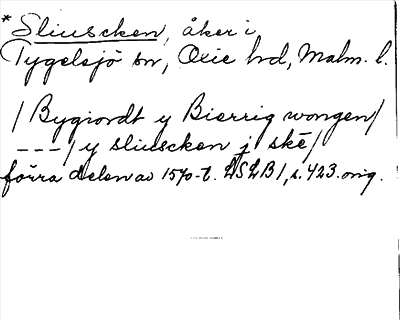 *Sliuscken, åker i
Tygelsjö sn, Oxie hd, Malm. l.
/Bygiordt y Bierrig wongen/
---/y sliuscken j skē/
förra delen av 1570-t. LSLB1, s. 423. orig.